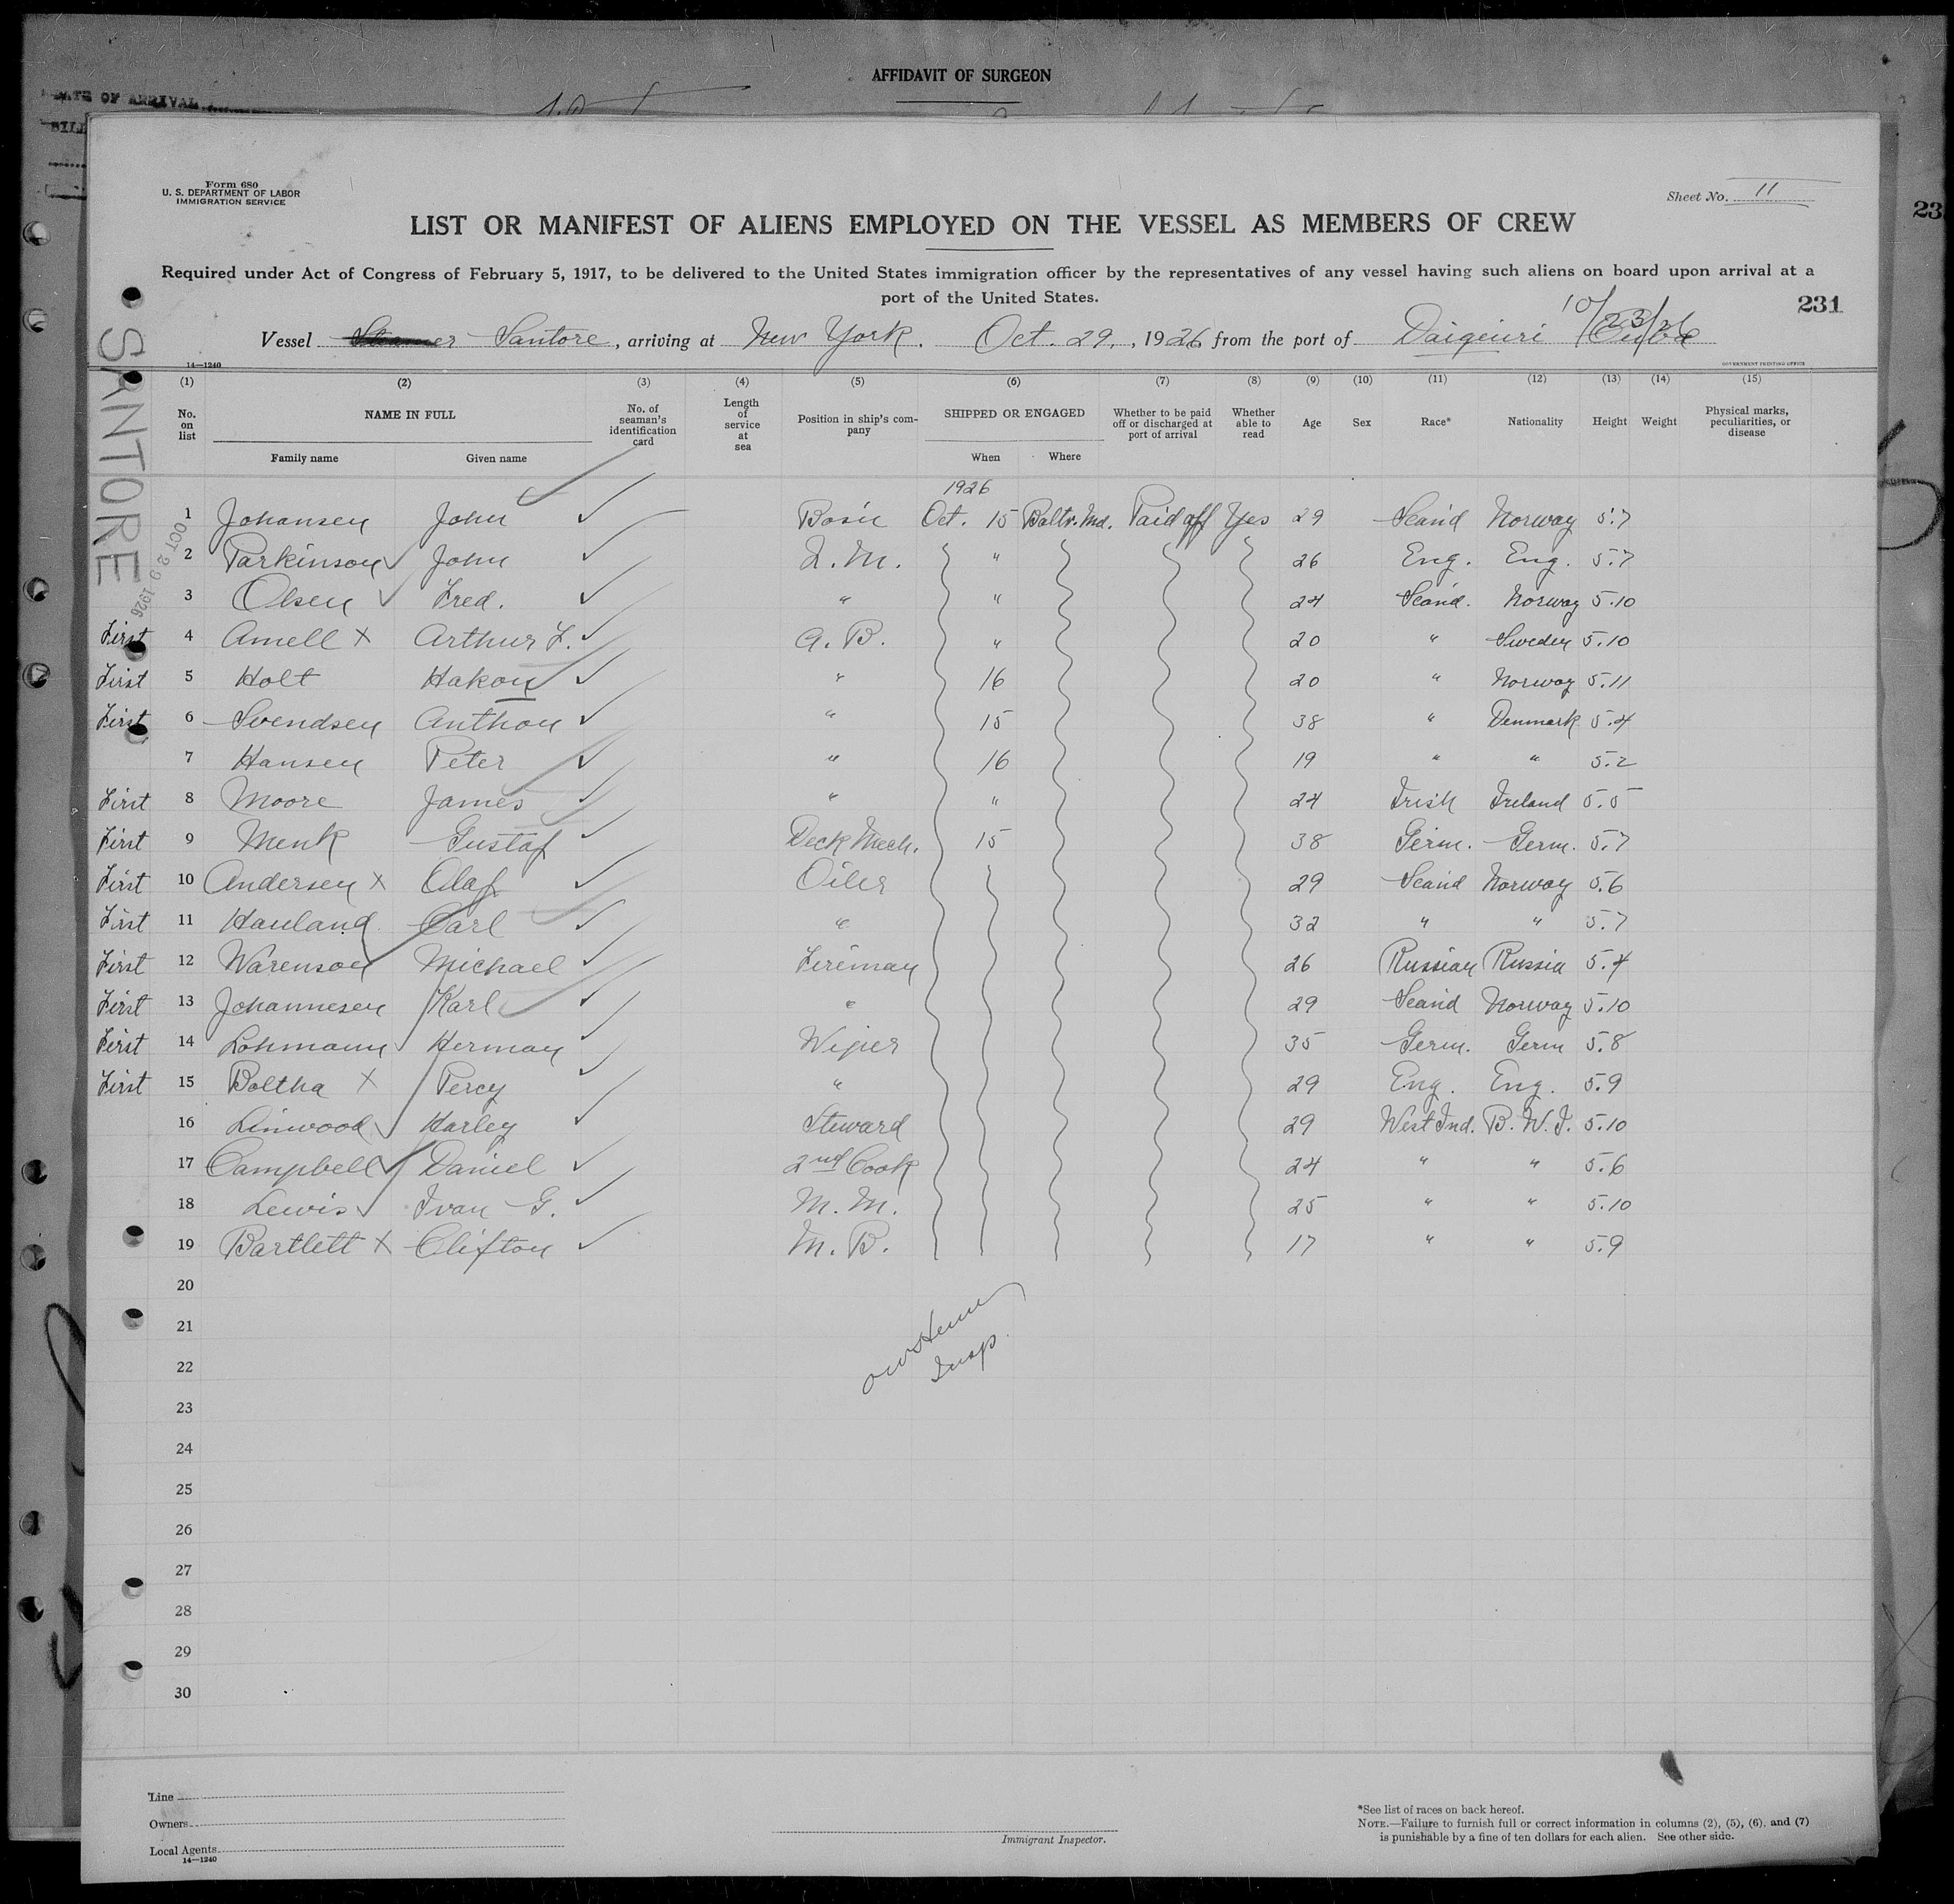 AFFIDAVIT OF SURGEON
DATE OF ARRIVAL
Form 680
U. S. DEPARTMENT OF LABOR
IMMIGRATION SERVICE
Sheet No. 11
LIST OR MANIFEST OF ALIENS EMPLOYED ON THE VESSEL AS MEMBERS OF CREW
Required under Act of Congress of February 5, 1917, to be delivered to the United States immigration officer by the representatives of any vessel having such aliens on board upon arrival at a
port of the United States.
10/23/26
231
23
Vessel Steamer Santore, arriving at New York. Oct. 29., 1926 from the port of Daiquiri Cuba
14—1240
GOVERNMENT PRINTING OFFICE
SANTORE
OCT 29 1926
(1) (2) (3) (4) (5) (6) (7) (8) (9) (10) (11) (12) (13) (14) (15)
No. on list NAME IN FULL No. of seaman's identification card Length of service at sea Position in ship's company SHIPPED OR ENGAGED Whether to be paid off or discharged at port of arrival Whether able to read Age Sex Race* Nationality Height Weight Physical marks, peculiarities, or disease
Family name Given name When Where
1926
1 Johansen John Bosn Oct. 15 Balto. Md. Paid off Yes 29 Scand Norway 5.7
2 Parkinson John Q. M. " 26 Eng. Eng. 5.7
3 Olsen Fred. " " 24 Scand. Norway 5.10
First 4 Amell X Arthur F. A. B. " 20 " Sweden 5.10
First 5 Holt Hakon " 16 20 " Norway 5.11
First 6 Svendsen Anthon " 15 38 " Denmark 5.4
7 Hansen Peter " 16 19 " " 5.2
First 8 Moore James " " 24 Irish Ireland 5.5
First 9 Menk Gustaf Deck Mech. 15 38 Germ. Germ. 5.7
First 10 Andersen X Olaf Oiler 29 Scand Norway 5.6
First 11 Hauland Carl " 32 " " 5.7
First 12 Warenson Michael Fireman 26 Russian Russia 5.4
First 13 Johannesen Karl " 29 Scand Norway 5.10
First 14 Lohmann Herman Wiper 35 Germ. Germ 5.8
First 15 Boltha X Percy " 29 Eng. Eng. 5.9
16 Linwood Harley Steward 29 West Ind. B. W. I. 5.10
17 Campbell Daniel 2nd Cook 24 " " 5.6
18 Lewis Ivan G. M. M. 25 " " 5.10
19 Bartlett X Clifton M. B. 17 " " 5.9
20
21
22
Insp.
23
24
25
26
27
28
29
30
Line
Owners
Local Agents
14—1240
Immigrant Inspector.
*See list of races on back hereof.
NOTE.—Failure to furnish full or correct information in columns (2), (5), (6), and (7)
is punishable by a fine of ten dollars for each alien. See other side.